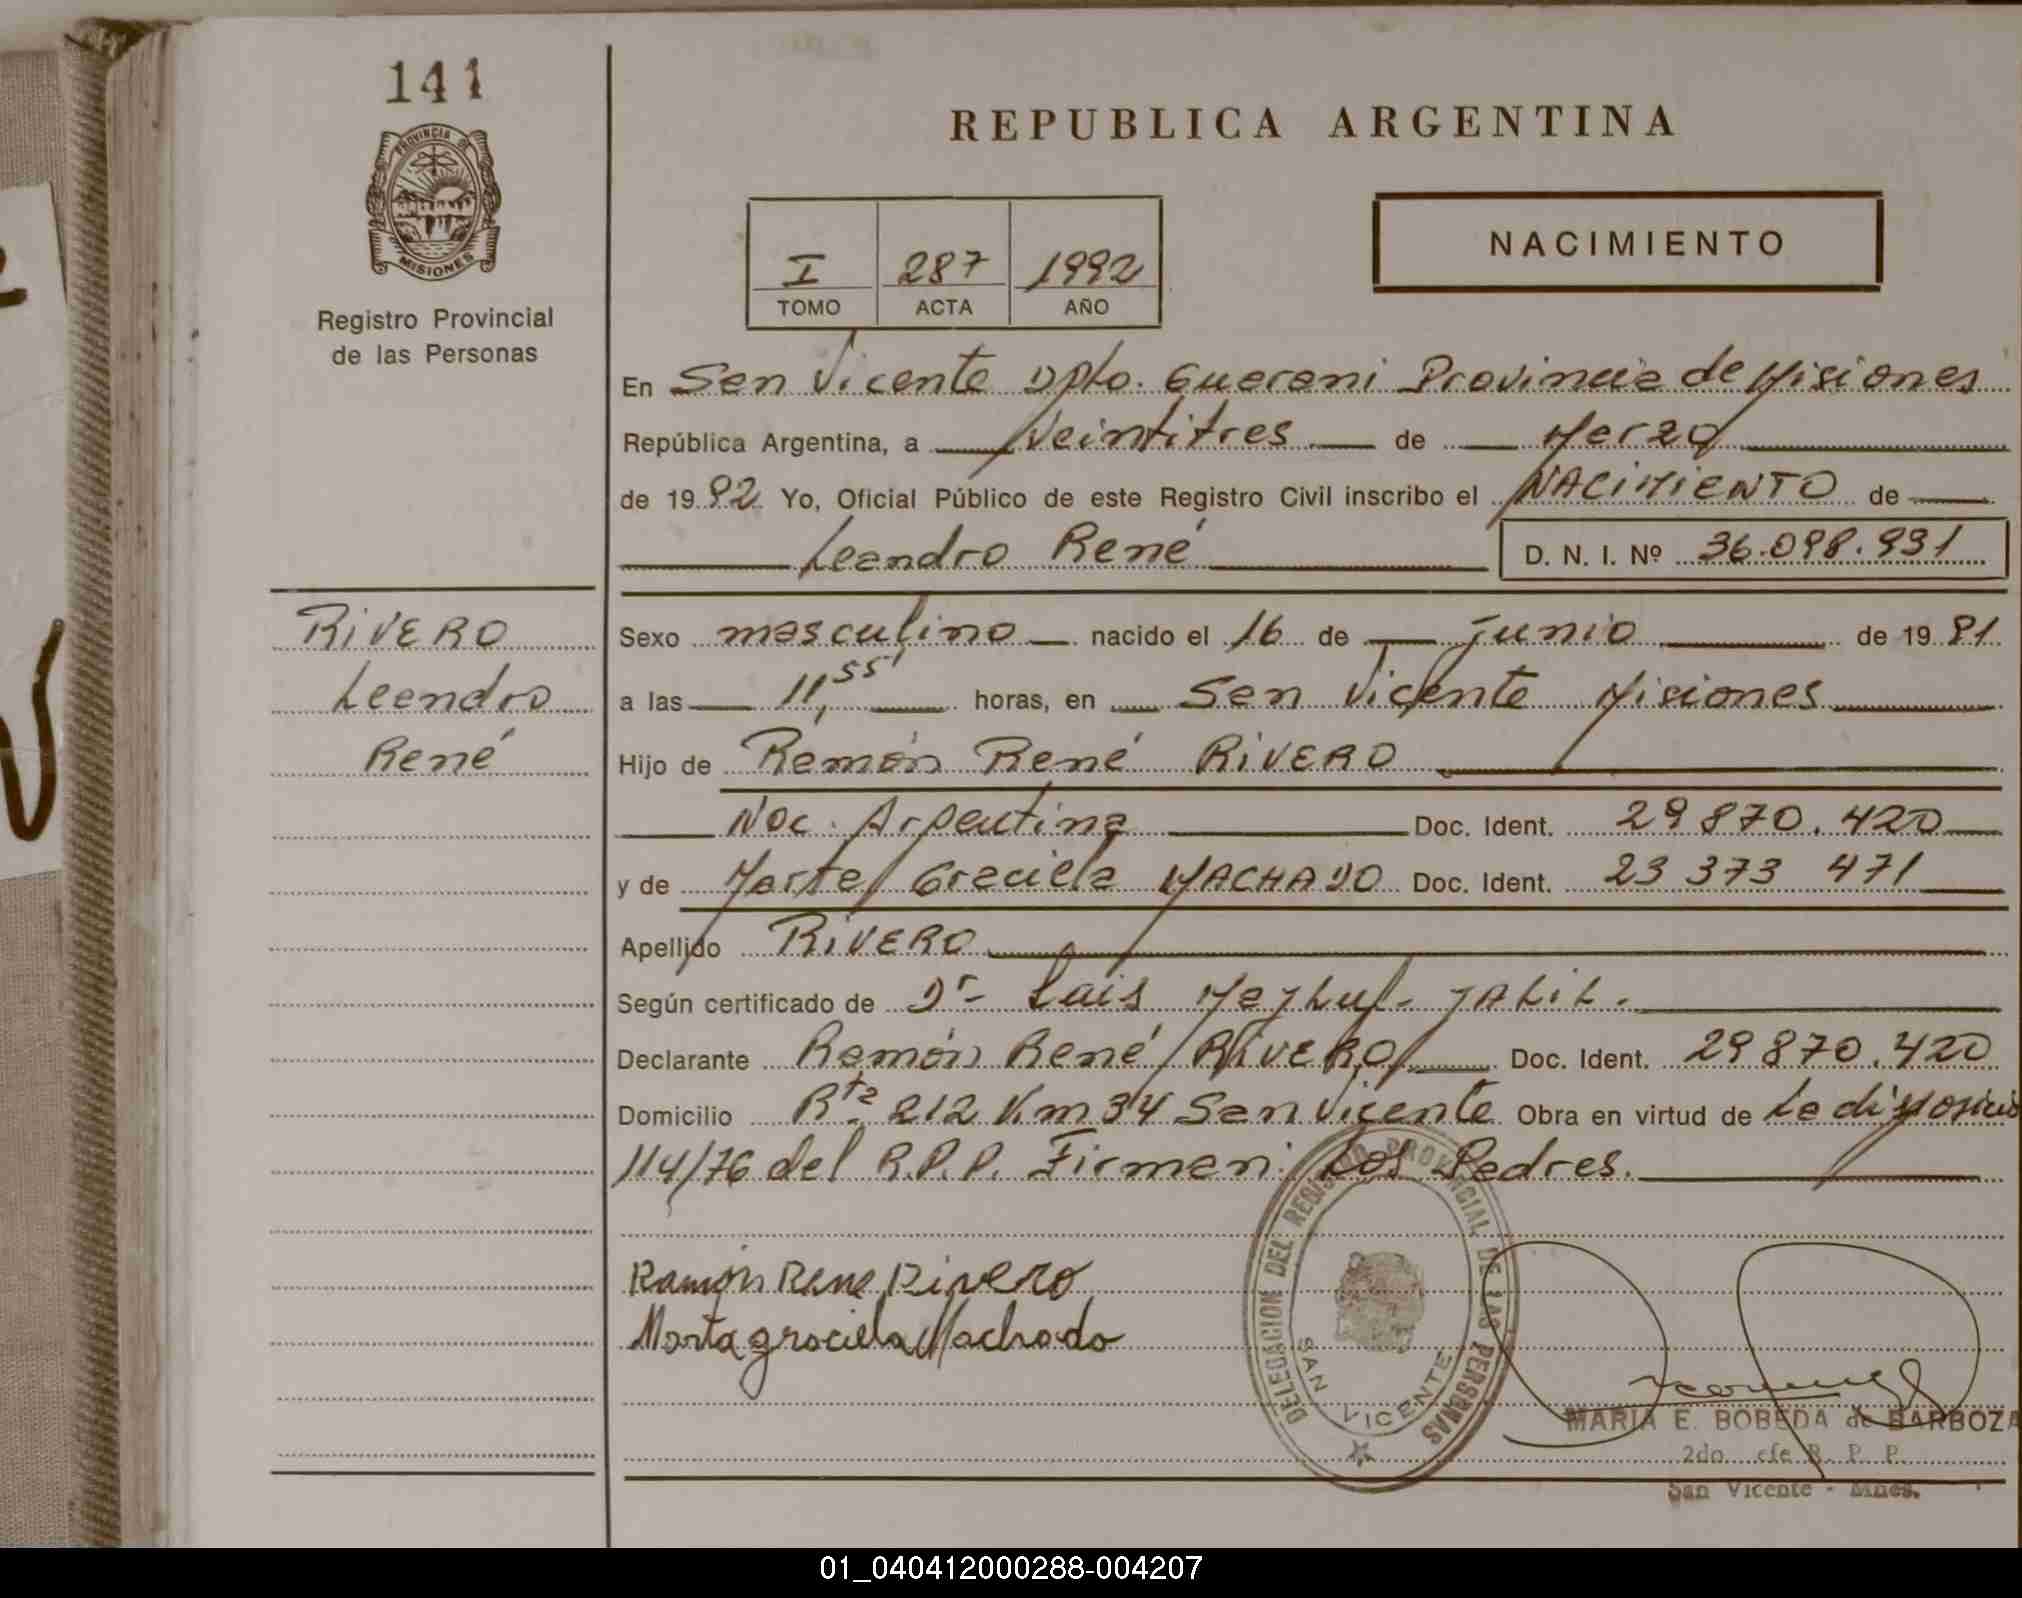 141
PROVINCIA DE
MISIONES
Registro Provincial
de las Personas
REPUBLICA ARGENTINA
I 287 1992
TOMO ACTA AÑO
NACIMIENTO
En San Vicente Dpto. Guarani Provincia de Misiones
República Argentina, a Veintitres de Marzo
de 1992 Yo, Oficial Público de este Registro Civil inscribo el NACIMIENTO de
Leandro René D. N. I. Nº 36.098.931
RIVERO
Leandro
René
Sexo masculino nacido el 16 de junio de 1991
a las 11,55' horas, en San Vicente Misiones
Hijo de Ramón René RIVERO
Nac. Argentina Doc. Ident. 29870.420
y de Marta Graciela MACHADO Doc. Ident. 23 373 471
Apellido RIVERO
Según certificado de Dr- Luis JALIL.
Declarante Ramón René RIVERO Doc. Ident. 29870.420
Domicilio Rta 212 Km 34 San Vicente Obra en virtud de La
114/76 del R.P.P. Firman: Los Padres.
Ramón Rene Rivero
Marta graciela Machado
DELEGACION DEL REGISTRO PROVINCIAL DE LAS PERSONAS
SAN VICENTE
MARIA E. BOBEDA de BARBOZA
2do. R. P. P.
San Vicente - Mnes.
01_040412000288-004207